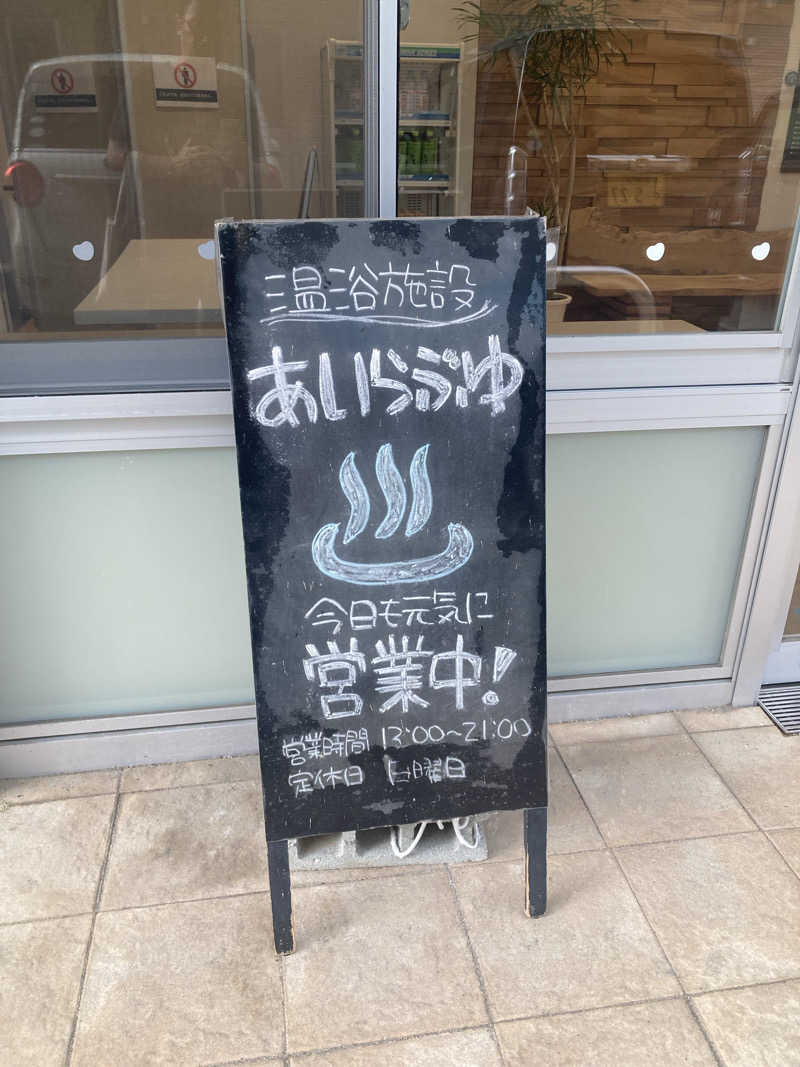 温浴施設
あいらぶゆ
今日も元気に
営業中!
営業時間 13:00~21:00
定休日 日曜日